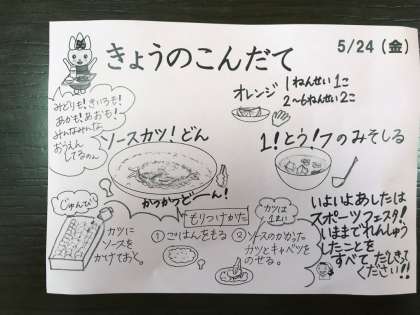 きょうのこんだて
5/24 (金)
みどりも!きいろも!
あかも!あおも!
みんなみんな
おうえん
してるのん
オレンジ
1ねんせい1こ
2〜6ねんせい2こ
ソースカツ!どん
かつかつどーん!
1!とう!フのみそしる
じゅんび
カツに
ソースを
かけておく。
もりつけかた
①ごはんをもる
②ソースのかかった
カツとキャベツを
のせる。
カツは
1まい
いよいよあしたは
スポーツフェスタ!
いままでれんしゅう
したことを
すべてだしきって
ください!!